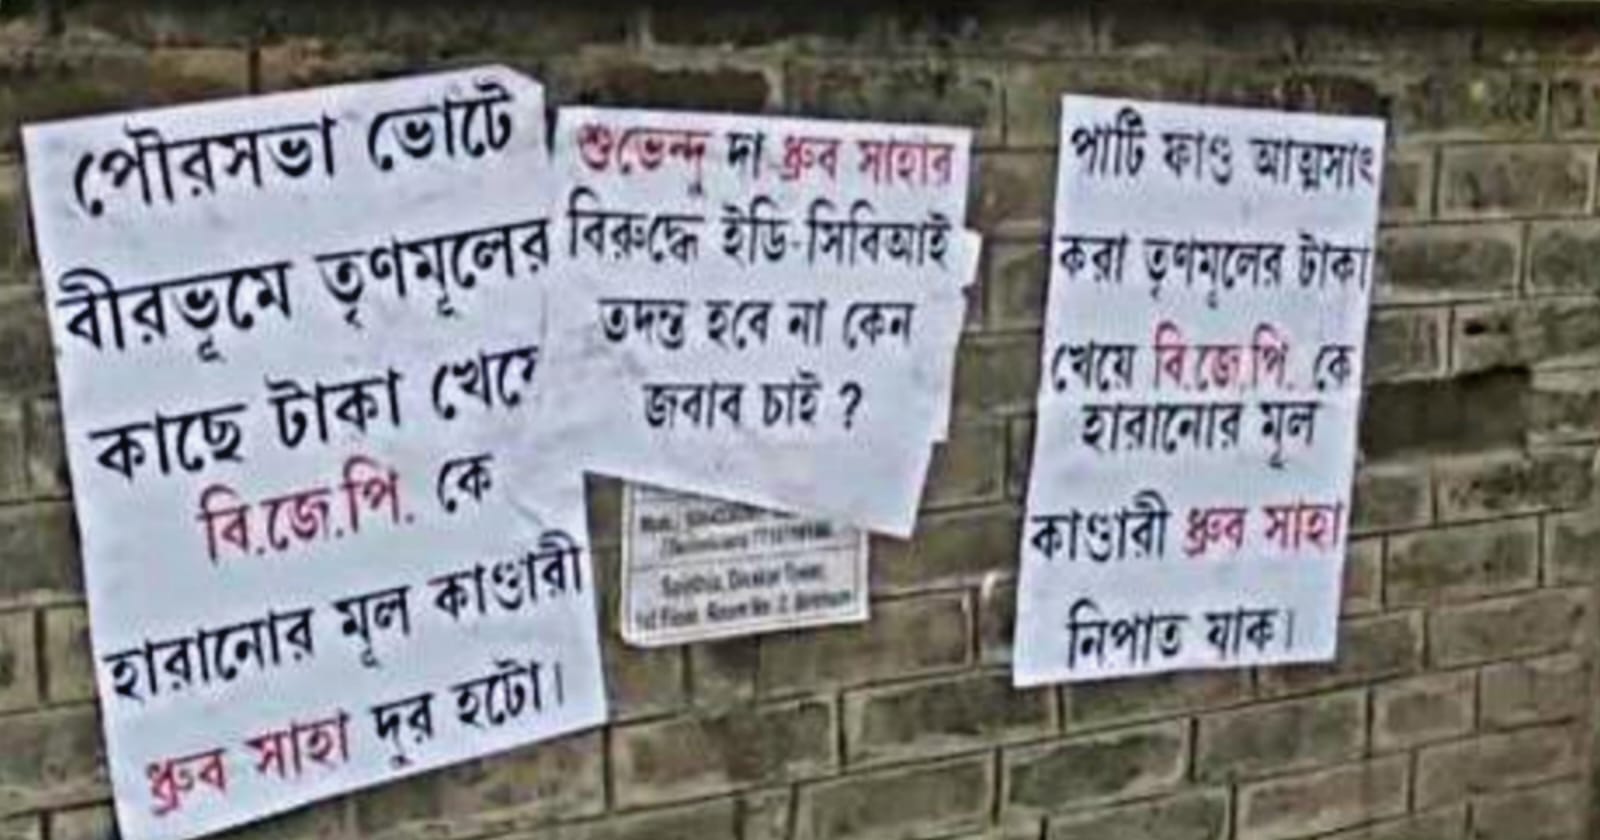 পৌরসভা ভোটে
বীরভূমে তৃণমূলের
কাছে টাকা খেয়ে
বি.জে.পি. কে
হারানোর মূল কাণ্ডারী
ধ্রুব সাহা দুর হটো।
শুভেন্দু দা ধ্রুব সাহার
বিরুদ্ধে ইডি-সিবিআই
তদন্ত হবে না কেন
জবাব চাই ?
Floor, Room No.
পার্টি ফাণ্ড আত্মসাৎ
করা তৃণমূলের টাকা
খেয়ে বি.জে.পি. কে
হারানোর মূল
কাণ্ডারী ধ্রুব সাহা
নিপাত যাক।